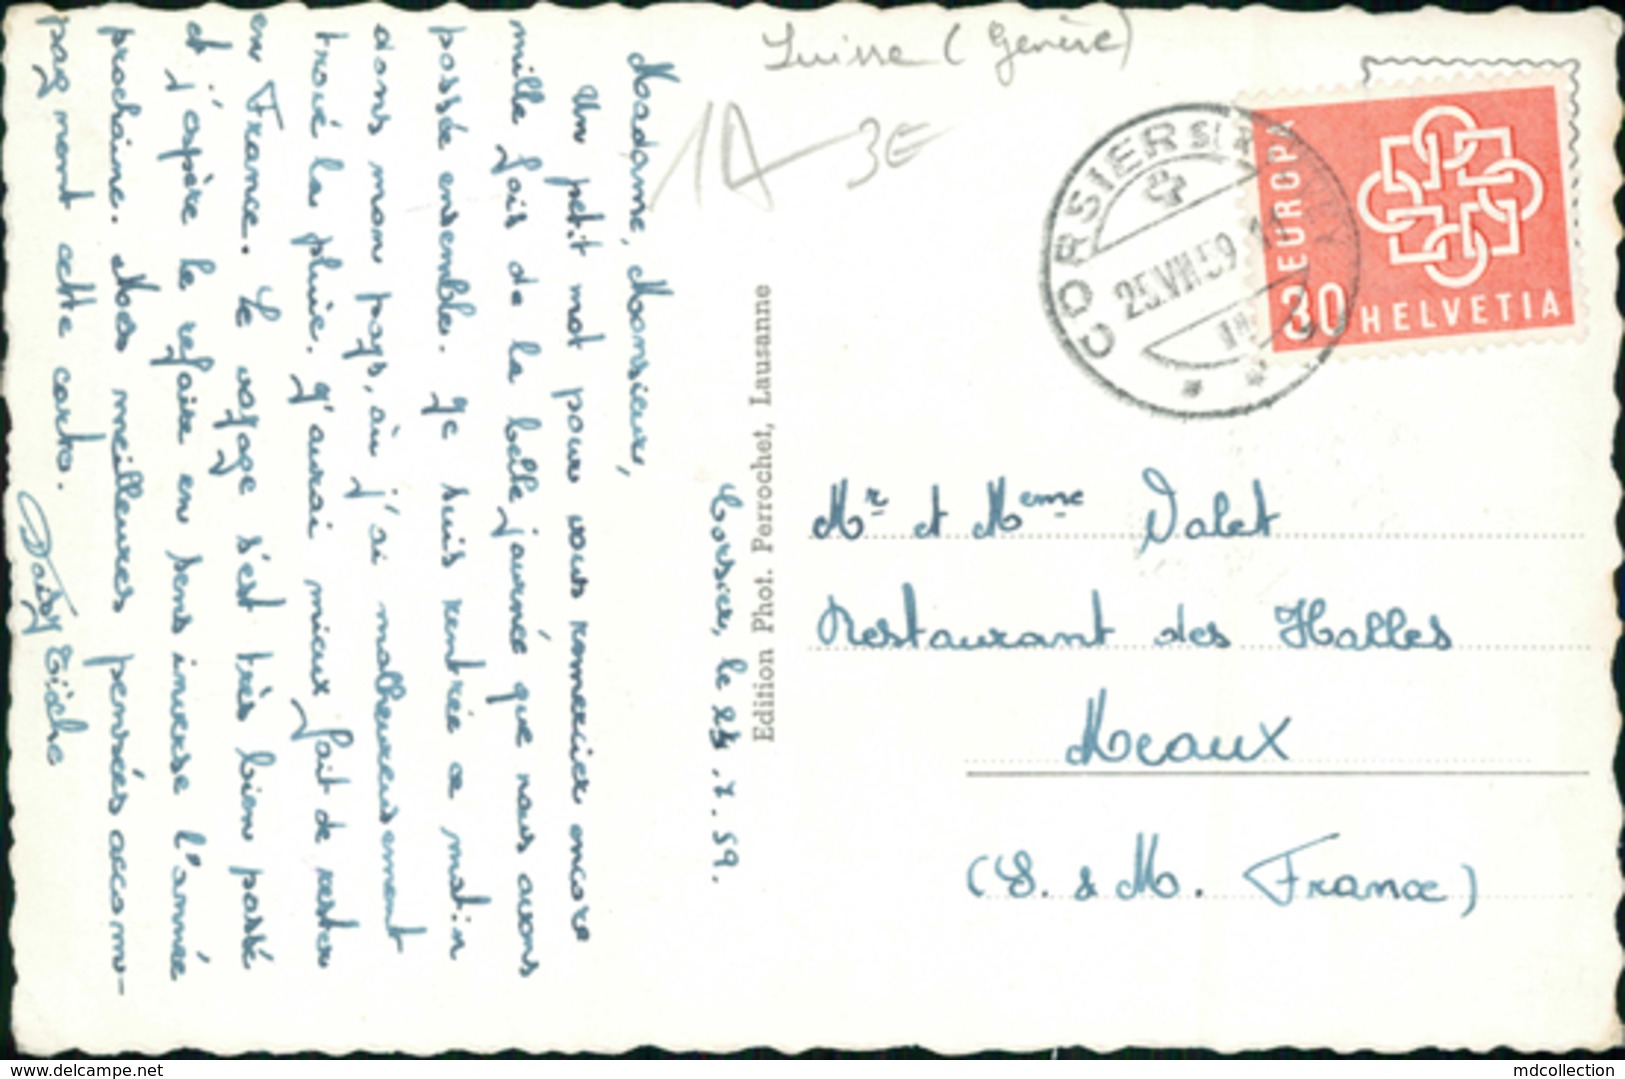 Suisse (Genève)
1A 3E
CORSIER S/VEVEY
25.VIII.59
EUROPA
30 HELVETIA
Corsier, le 25.8.59.
Madame, Monsieur,
Un petit mot pour vous remercier encore
mille fois de la belle journée que nous avons
passée ensemble. Je suis rentrée ce matin
dans mon pays, où j'ai malheureusement
trouvé la pluie. J'aurai mieux fait de rester
en France. Le voyage s'est très bien passé
et j'espère le refaire en sens inverse l'année
prochaine. Mes meilleures pensées accom-
pagnent cette carte.
Daisy
Edition Phot. Perrochet, Lausanne
Mr et Meme Valet
Restaurant des Halles
Meaux
(S. & M. France)
delcampe.net
mdcollection